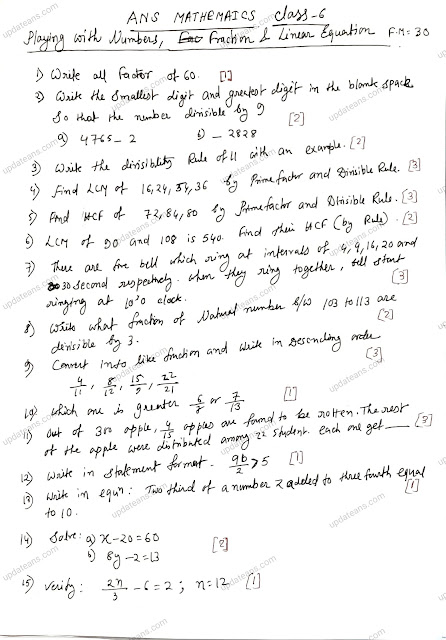 ANS MATHEMATICS class-6
Playing with Numbers, Fraction & Linear Equation F.M=30
1) Write all factor of 60. [1]
2) Write the smallest digit and greatest digit in the blank space
So that the number divisible by 9
a) 4765_2 b) _2828 [2]
3) Write the divisiblity Rule of 11 with an example. [2]
4) Find LCM of 16, 24, 54, 36 by Prime factor and Divisible Rule. [3]
5) Find HCF of 72, 84, 80 by Prime factor and Divisible Rule. [3]
6) LCM of 90 and 108 is 540. Find their HCF (by Rule). [2]
7) There are five bell which ring at intervals of 4, 9, 16, 20 and
30 second respectively. When they ring together, bell start
ringing at 10'o clock. [3]
8) Write what fraction of Natural number b/w 103 to 113 are
divisible by 3. [2]
9) Convert into like fraction and write in descending order
4/11, 8/12, 15/9, 22/21 [3]
10) which one is greater 6/8 or 7/13 [1]
11) Out of 300 apple, 4/15 apples are found to be rotten. The rest
of the apple were distributed among 22 student. each one get ___ [3]
12) Write in statement format. 9b/2 > 5 [1]
13) Write in equn: Two third of a number z added to three fourth equal
to 10. [1]
14) Solve: a) x-20=60
b) 8y-2=13 [2]
15) verify: 2n/3 -6=2; n=12 [1]
updateans.com